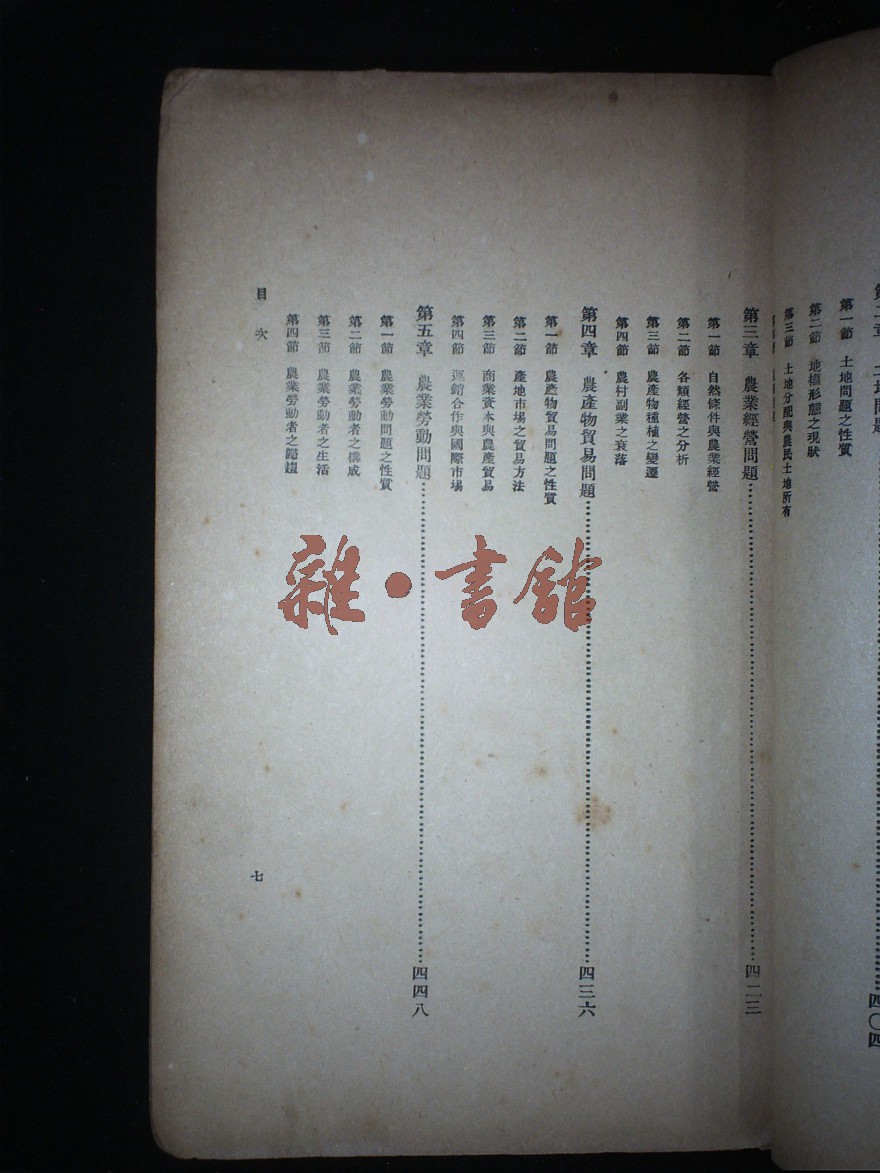 第二章　土地問題……四〇四
第一節　土地問題之性質
第二節　地權形態之現狀
第三節　土地分配與農民土地所有
第三章　農業經營問題……四二三
第一節　自然條件與農業經營
第二節　各類經營之分析
第三節　農產物種植之變遷
第四節　農村副業之衰落
第四章　農產物貿易問題……四三六
第一節　農產物貿易問題之性質
第二節　產地市場之貿易方法
第三節　商業資本與農產貿易
第四節　運銷合作與國際市場
第五章　農業勞動問題……四四八
第一節　農業勞動問題之性質
第二節　農業勞動者之構成
第三節　農業勞動者之生活
第四節　農業勞動者之歸趨
目次
七
雜・書館